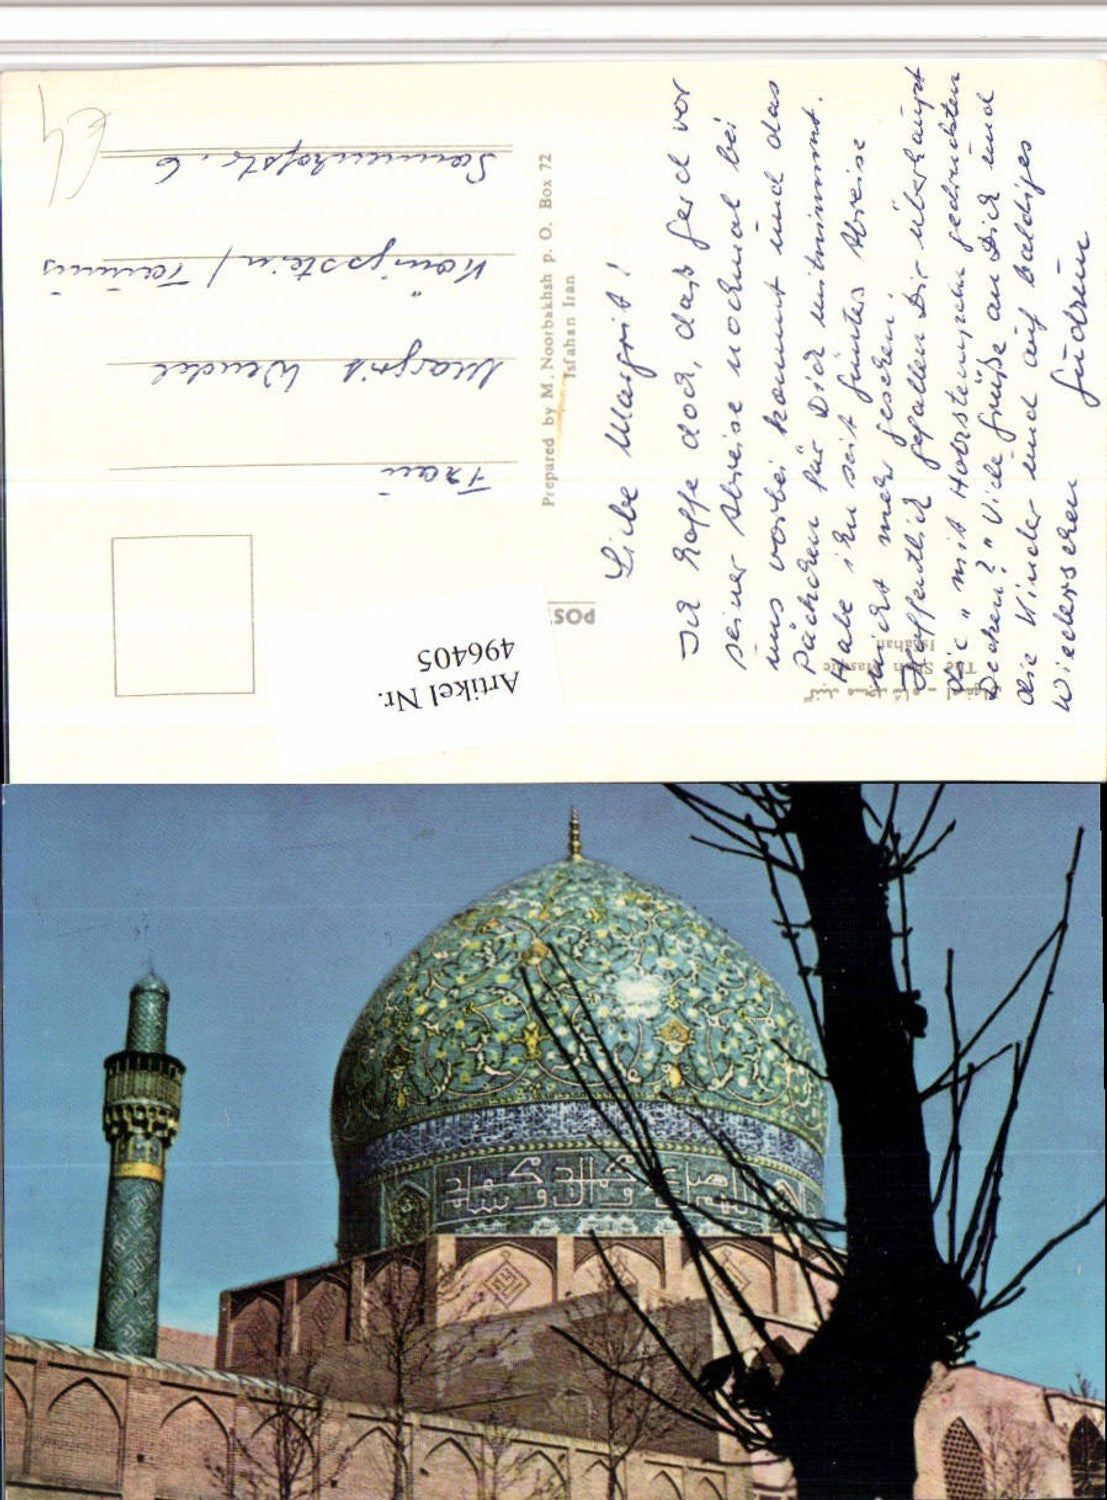 Liebe Margrit!
Ich hoffe doch, daß Gerd vor
seiner Abreise nochmal bei
uns vorbei kommt und das
Päckchen für Dich mitnimmt.
Habe ihn seit Abreise
nicht mehr gesehen.
Hoffentlich gefallen Dir überhaupt
die "mit Holzstempeln gedruckten
Decken?" Viele Grüße an Dich und
die Kinder und auf baldiges
Wiedersehen Gudrun
Prepared by M. Noorbakhsh p. O. Box 72
Isfahan Iran
POS
Frau
Margrit Wendel
Königstein / Taunus
Sonnenhofstr. 6
Artikel Nr.
496405
The Shah Masque
Isfahan